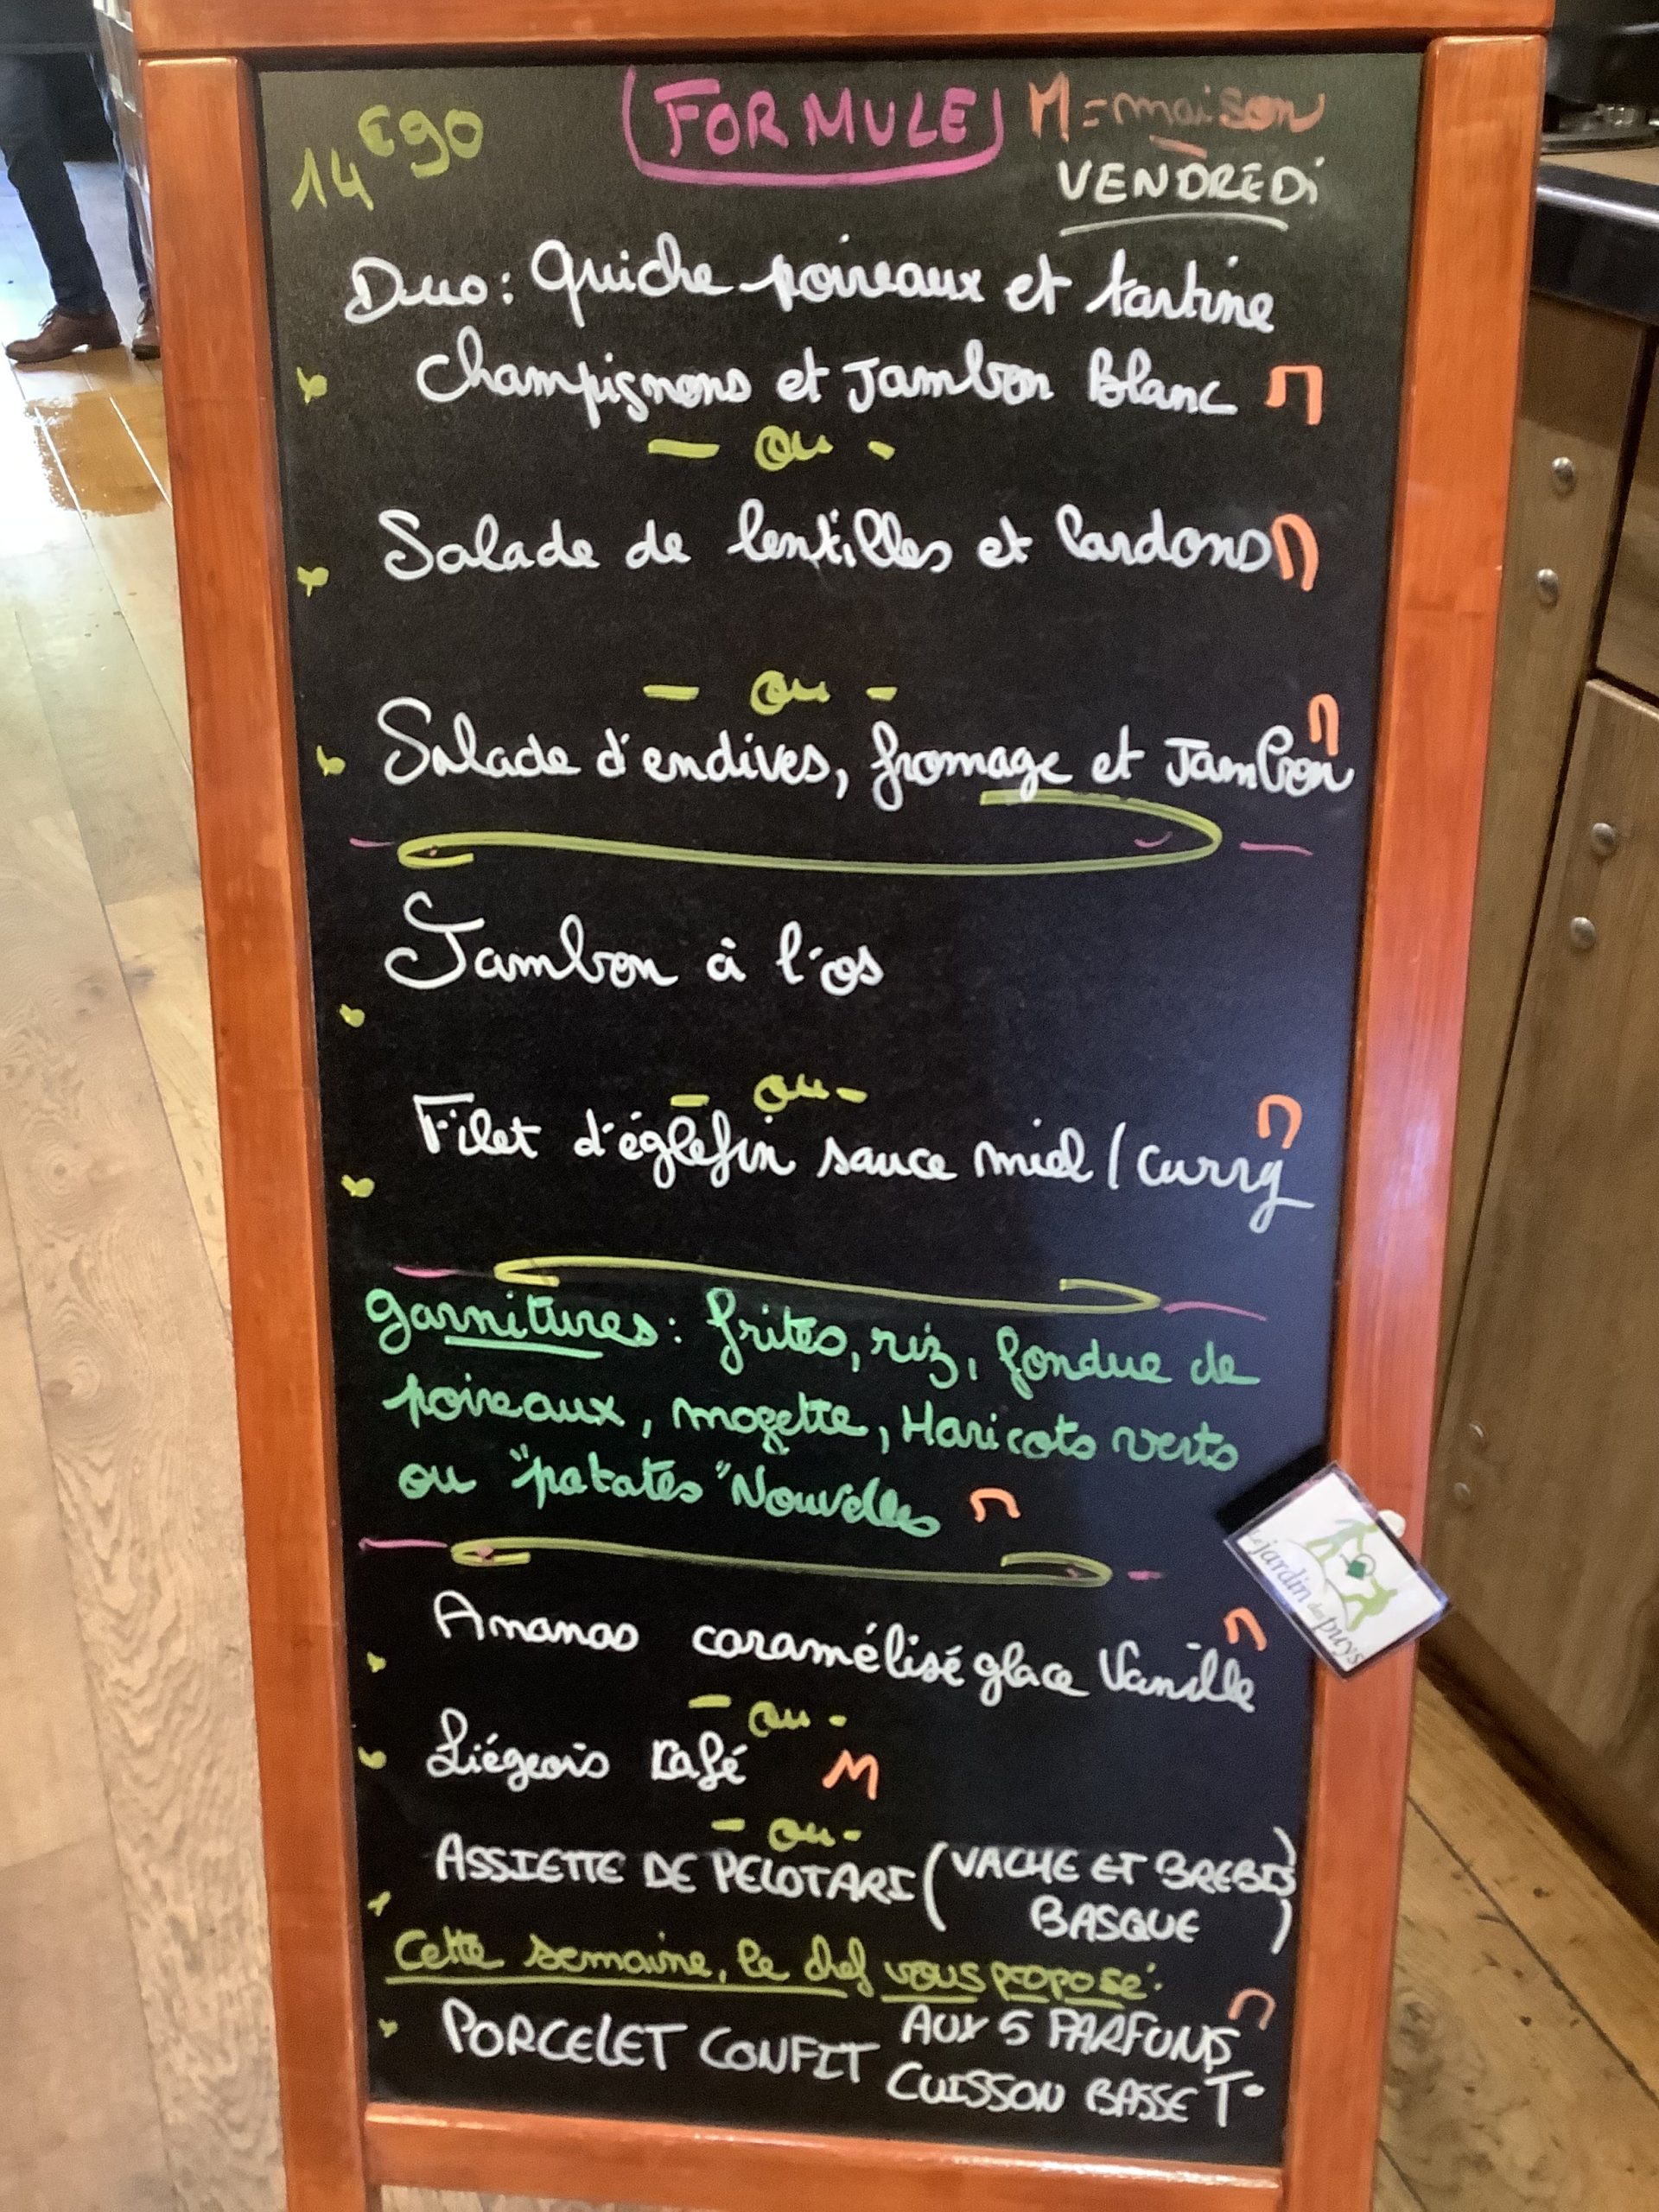 14€90 FORMULE M = maison
VENDREDi
Duo: Quiche poireaux et tartine
Champignons et Jambon Blanc M
- ou -
Salade de lentilles et lardons M
- ou -
Salade d'endives, fromage et Jambon M
Jambon à l'os
- ou -
Filet d'églefin sauce miel / curry M
garnitures: frites, riz, fondue de
poireaux, mogette, Haricots verts
ou "patates" Nouvelles M
Ananas caramélisé glace Vanille M
- ou -
Liégeois Café M
- ou -
ASSIETTE DE PELOTARI (VACHE ET BREBIS
BASQUE)
Cette semaine, le chef vous propose:
PORCELET CONFIT AUX 5 PARFUMS M
CUISSON BASSE T°
Le jardin des puys